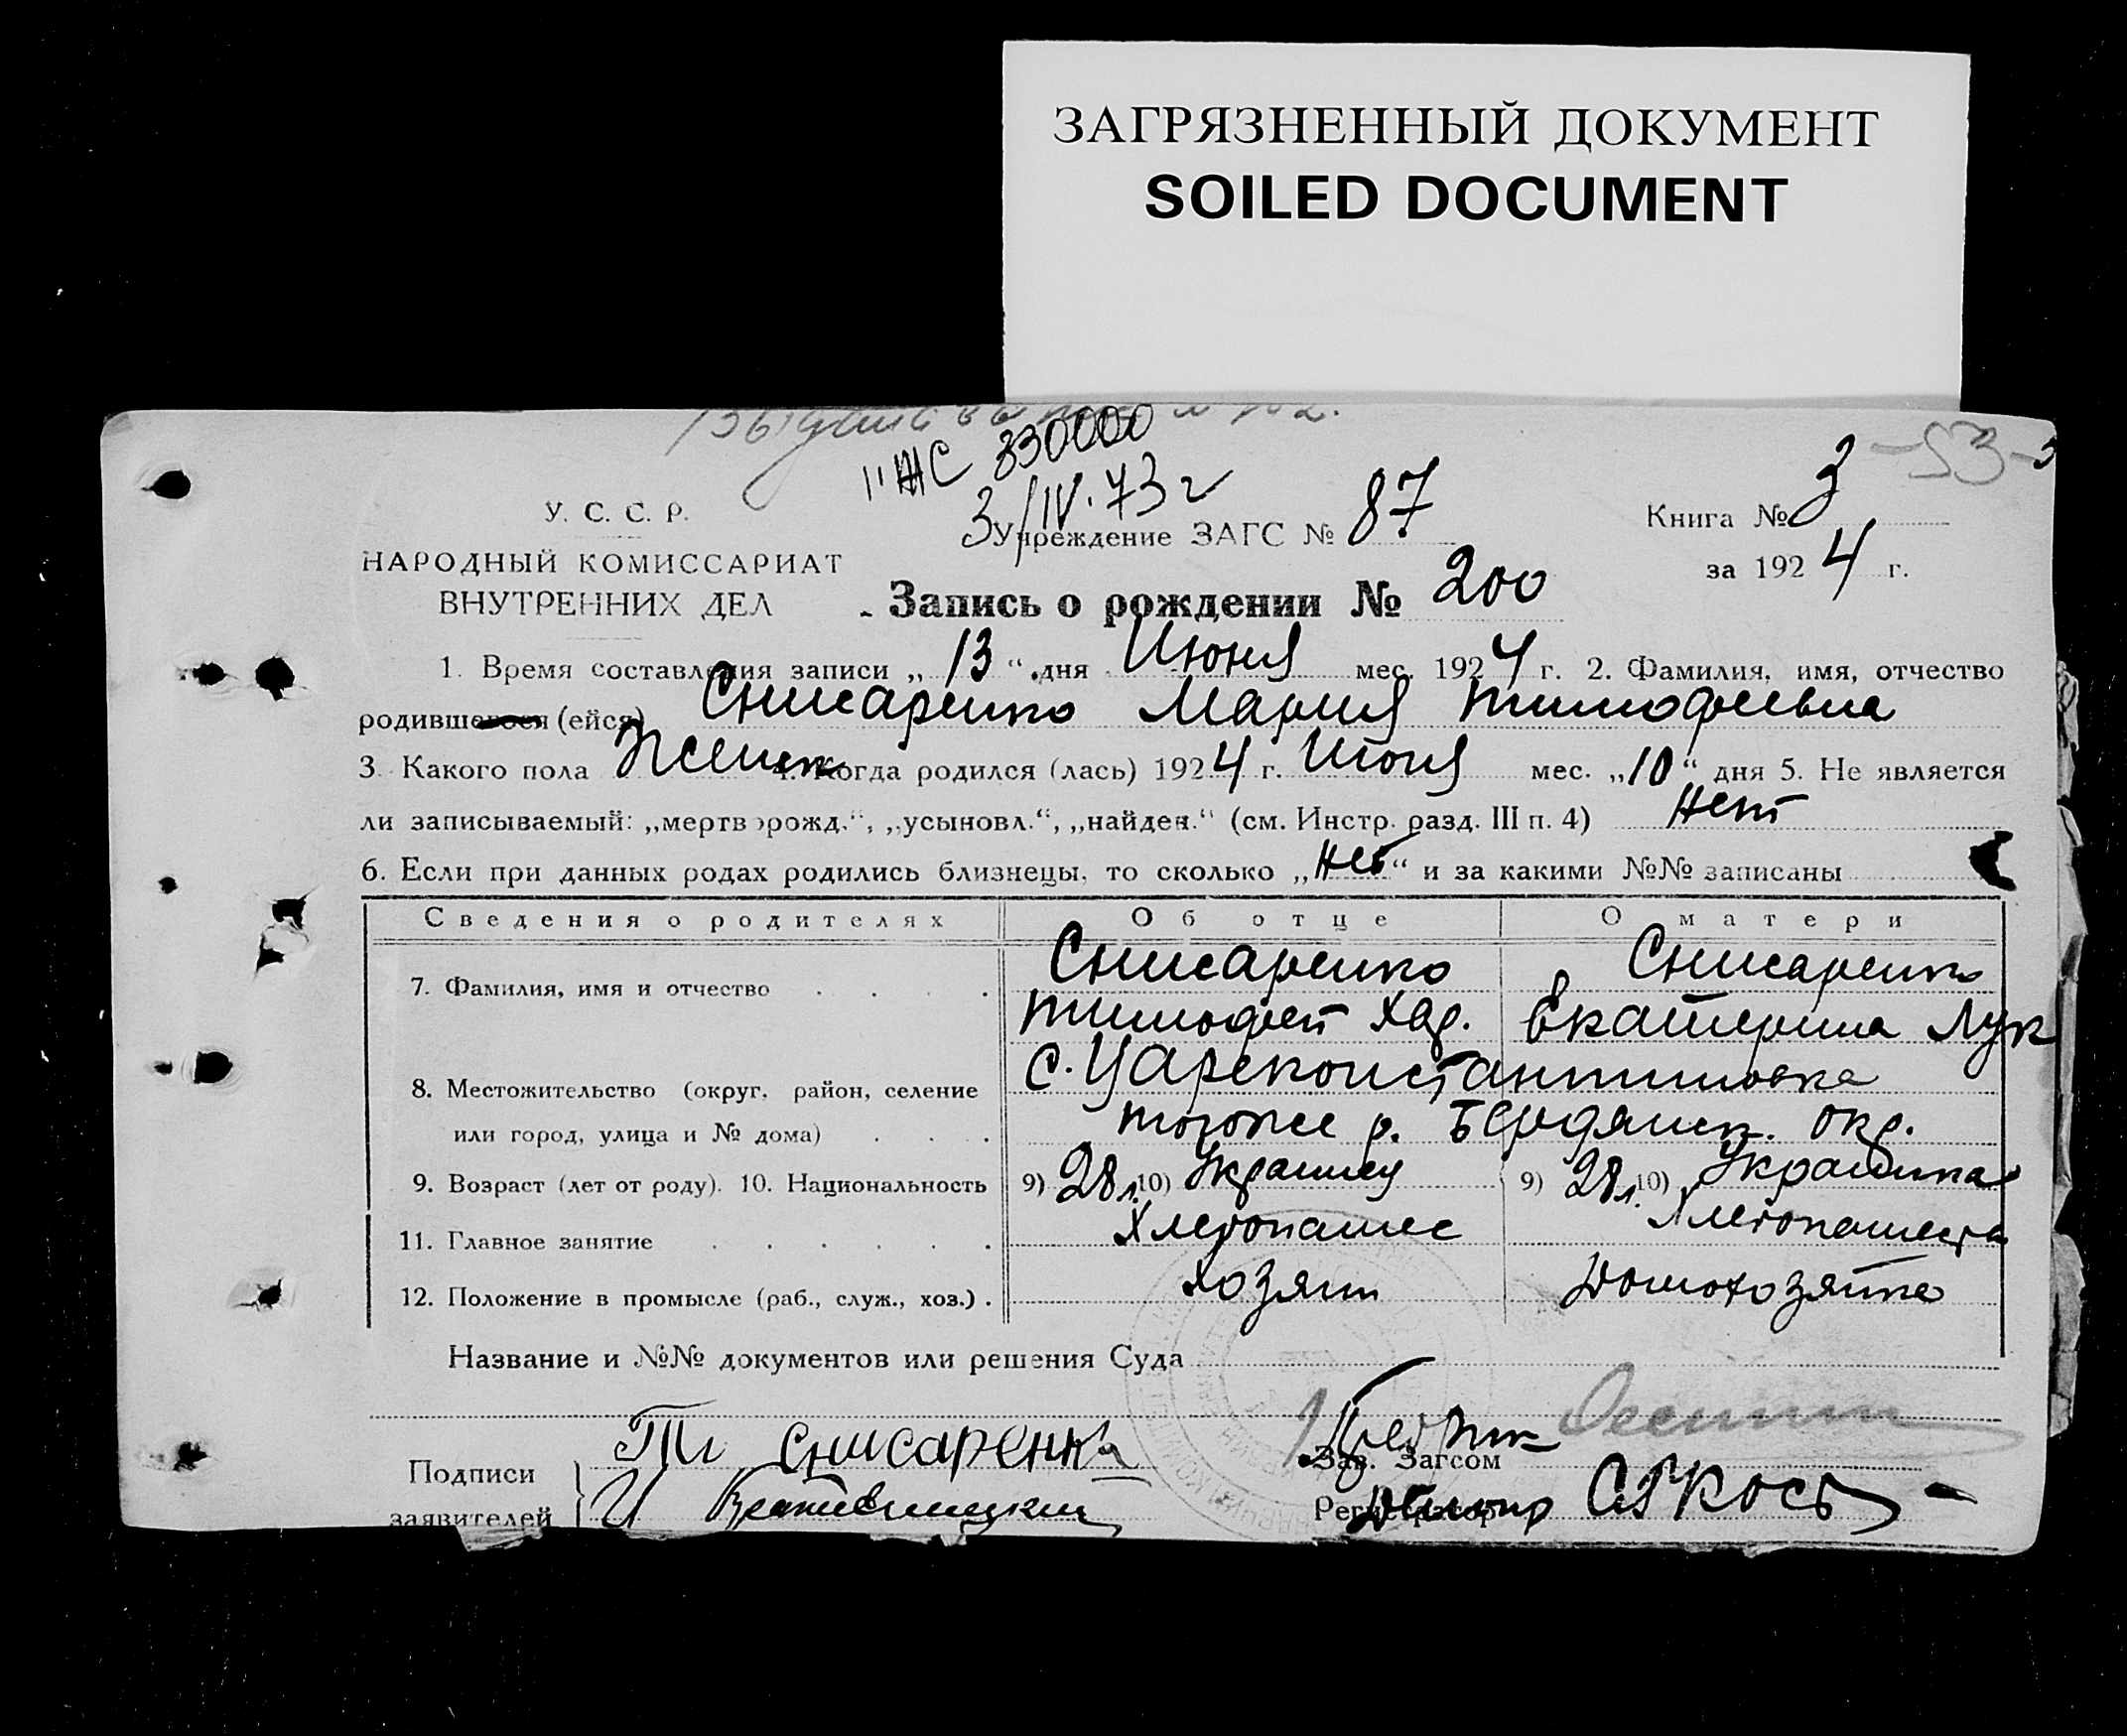 ЗАГРЯЗНЕННЫЙ ДОКУМЕНТ
SOILED DOCUMENT
-53-
II ЖС 330000
3/IV.73 г
У. С. С. Р.
НАРОДНЫЙ КОМИССАРИАТ
ВНУТРЕННИХ ДЕЛ
Учреждение ЗАГС № 87
Книга № 3
за 1924 г.
Запись о рождении № 200
1. Время составления записи „13“ дня Июня мес. 1924 г. 2. Фамилия, имя, отчество
родившегося (ейся) Снисаренко Мария Тимофеевна
3. Какого пола Женск 4. Когда родился (лась) 1924 г. Июня мес. „10“ дня 5. Не является
ли записываемый: „мертворожд.“, „усыновл.“, „найден.“ (см. Инстр. разд. III п. 4) Нет
6. Если при данных родах родились близнецы, то сколько „Нет“ и за какими №№ записаны
Сведения о родителях Об отце О матери
7. Фамилия, имя и отчество Снисаренко Снисаренко
Тимофей Хар. Екатерина Лук
8. Местожительство (округ, район, селение с. Цареконстантиновка
или город, улица и № дома) тогоже р. Бердянск. окр.
9. Возраст (лет от роду). 10. Национальность 9) 28 л. 10) Украинец 9) 28 л. 10) Украинка
11. Главное занятие Хлебопашес Хлебопашества
12. Положение в промысле (раб., служ., хоз.) Хозяин Домохозяйка
Название и №№ документов или решения Суда
Подписи Ти Снисаренка
заявителей И
Зав. Загсом
Регистратор